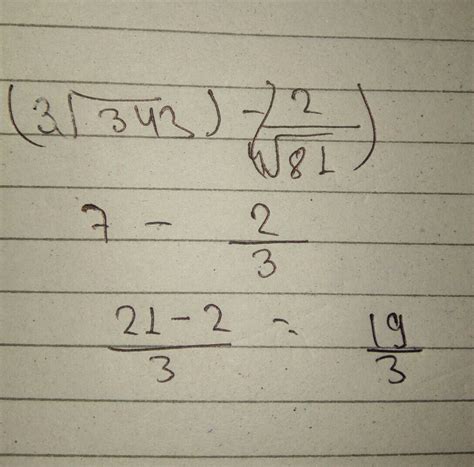 (3√343) - (2/4√81)
7 - 2/3
21-2/3 = 19/3